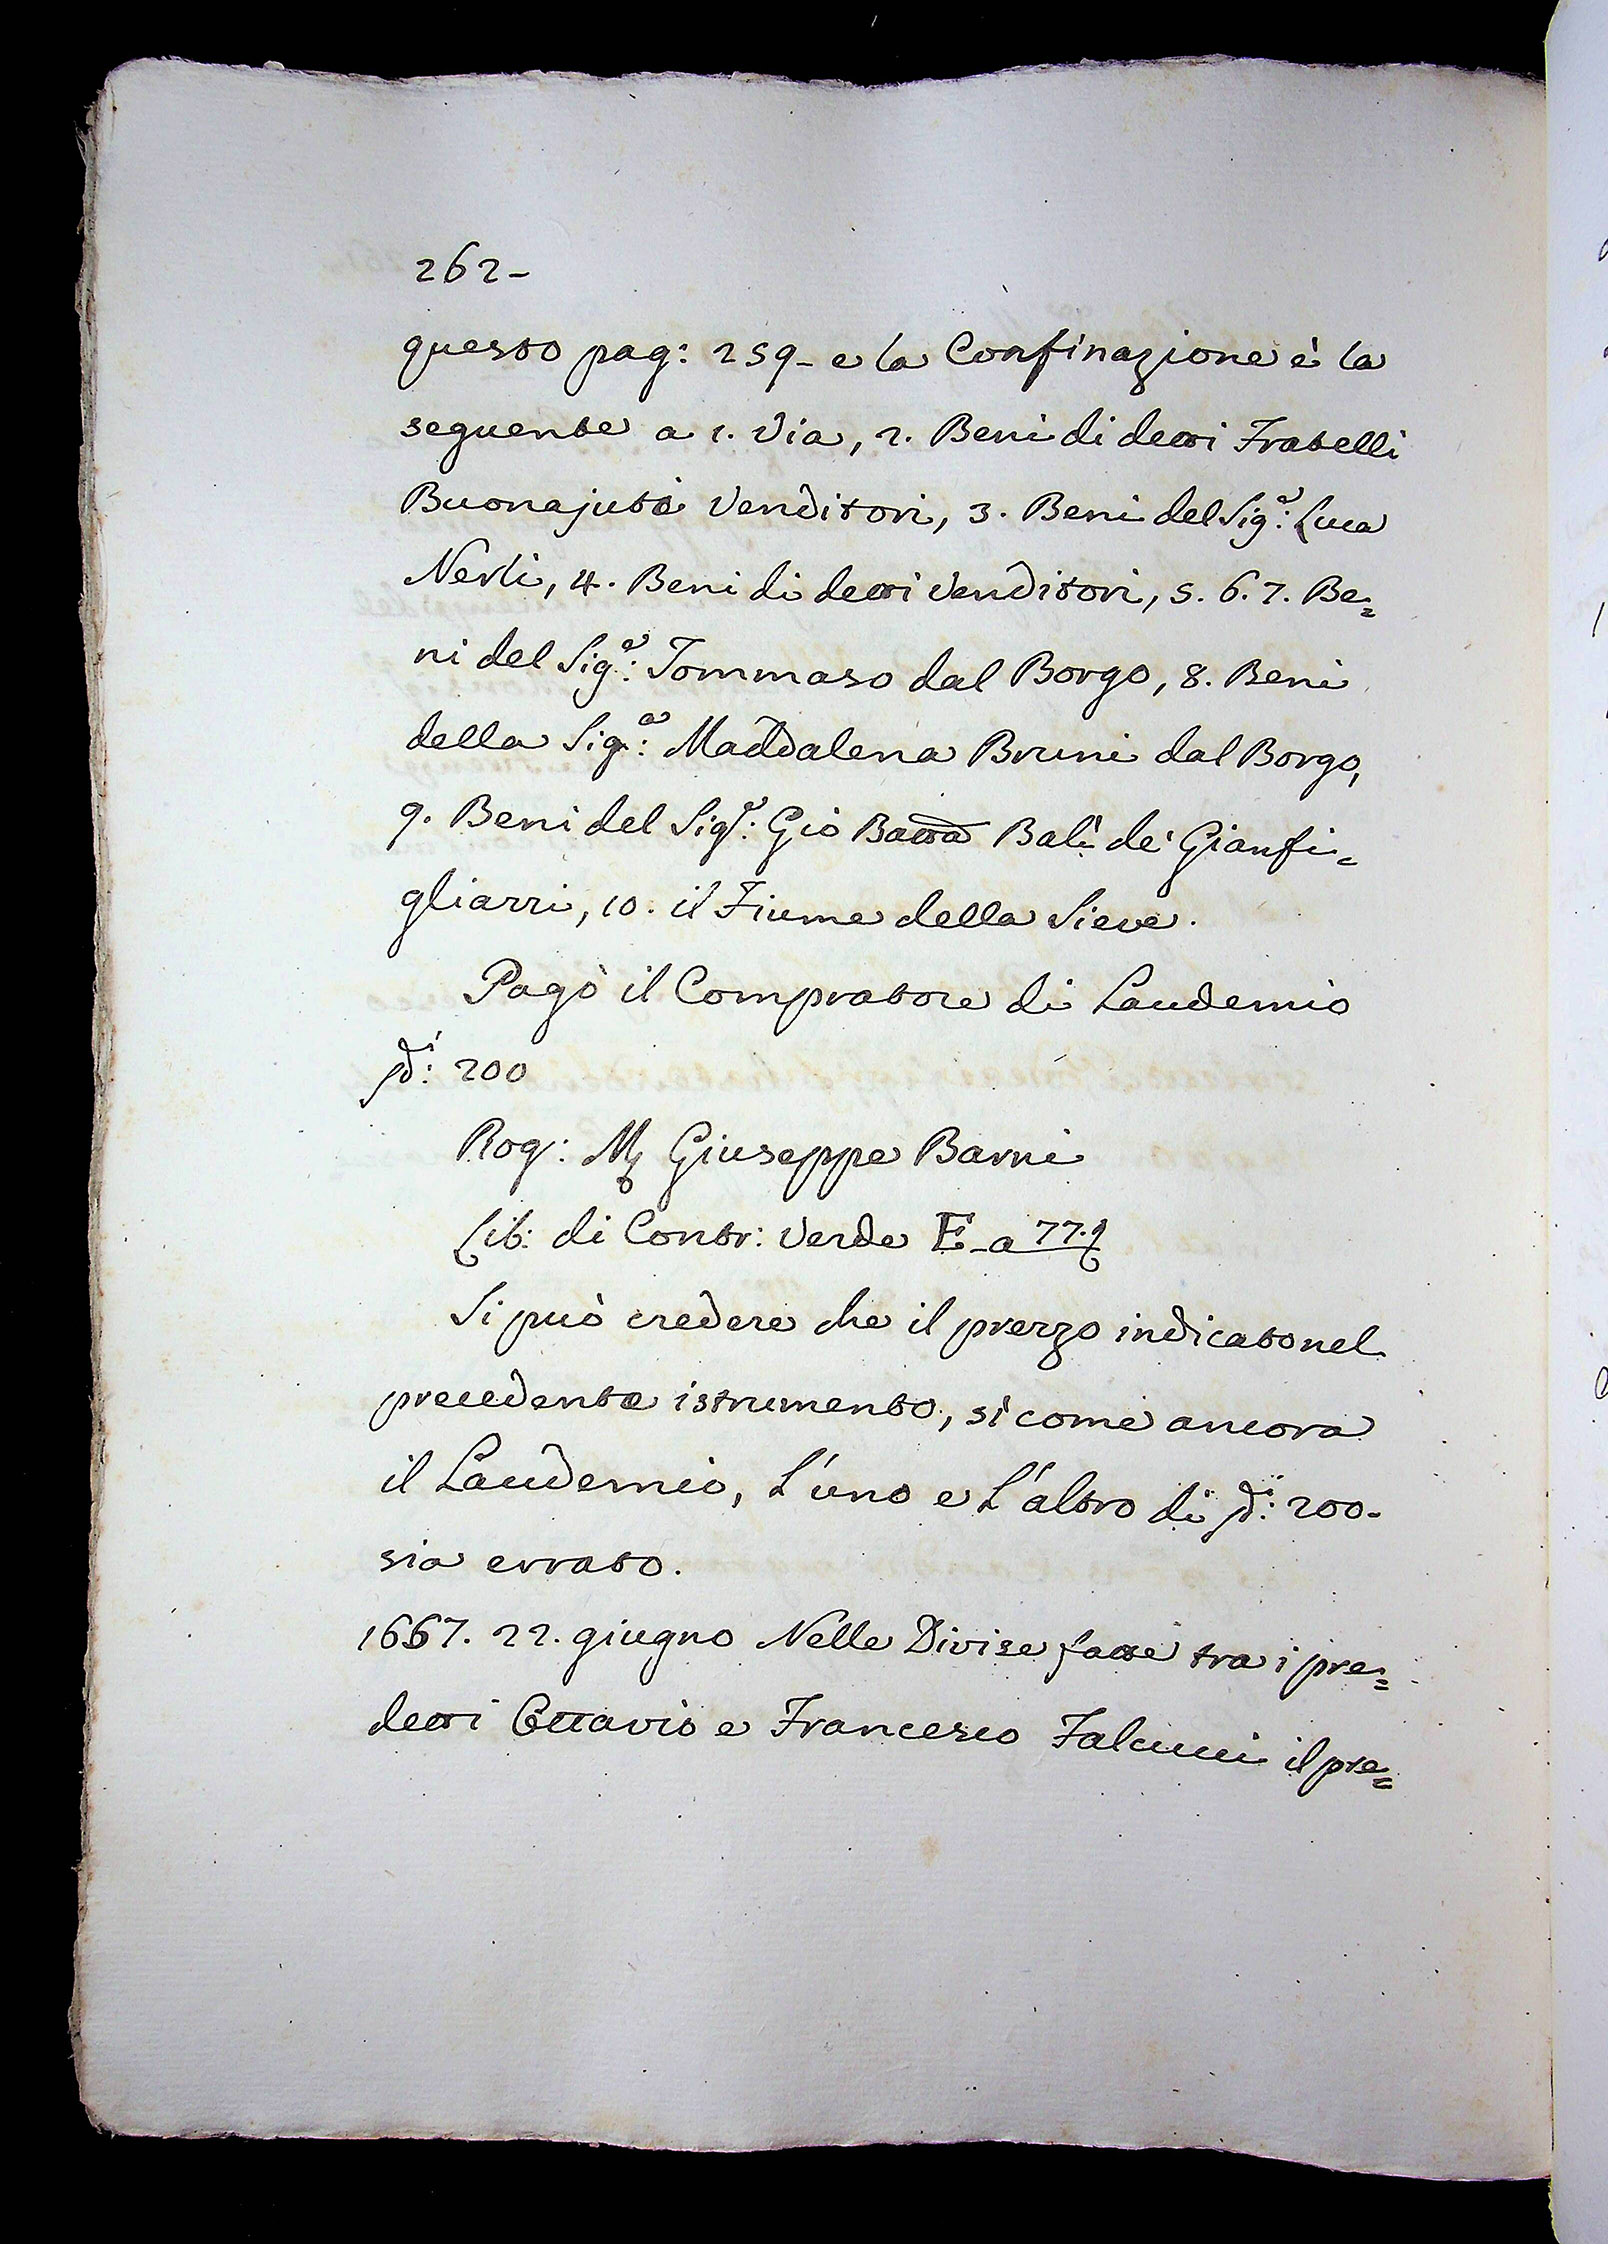 262-
questo pag: 259- e la Confinazione è la
seguente a 1. Via, 2. Beni di detti Fratelli
Buonajuti Venditori, 3. Beni del Sig.e: Luca
Nerli, 4. Beni di detti Venditori, 5. 6. 7. Be=
ni del Sig.e: Tommaso dal Borgo, 8. Beni
della Sig.a: Maddalena Bruni dal Borgo,
9. Beni del Sig.e: Gio Batta Balì de' Gianfi=
gliazzi, 10. il Fiume della Sieve.
Pagò il Compratore di Laudemio
di: 200
Rog: M Giuseppe Barni
Lib: di Contr: Verde E-a 77.
Si può credere che il prezzo indicato nel
precedente istrumento, sì come ancora
il Laudemio, L'uno e L'altro di di: 200-
sia errato.
1667. 22. giugno Nelle Divise fatte tra i pre=
detti Ottavio e Francesco Falcucci il pre=